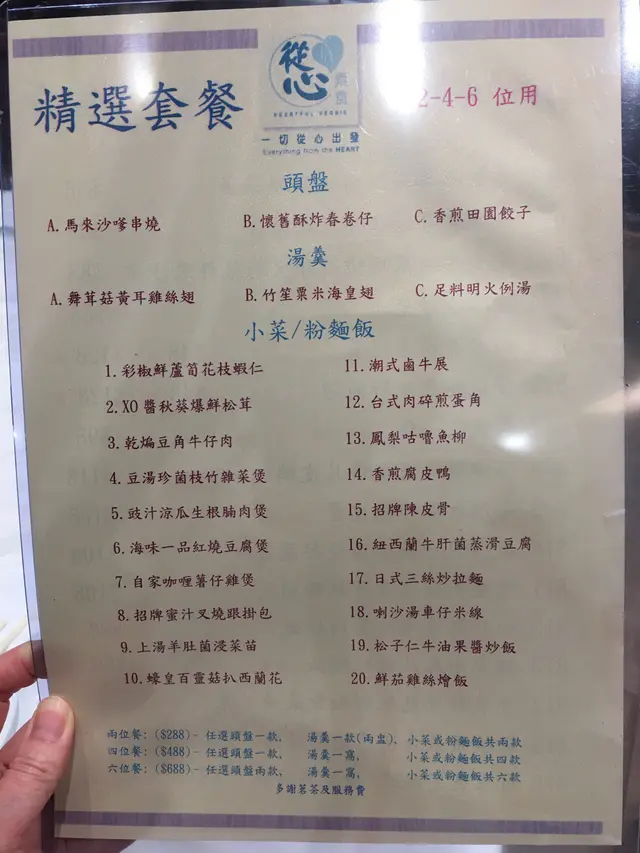 從心
素食
HEARTFUL VEGGIE
一切從心出發
Everything from the HEART
精選套餐
2-4-6 位用
頭盤
A.馬來沙嗲串燒 B.懷舊酥炸春卷仔 C.香煎田園餃子
湯羹
A.舞茸菇黃耳雞絲翅 B.竹笙粟米海皇翅 C.足料明火例湯
小菜/粉麵飯
1.彩椒鮮蘆筍花枝蝦仁
2.XO醬秋葵爆鮮松茸
3.乾煸豆角牛仔肉
4.豆湯珍菌枝竹雜菜煲
5.豉汁涼瓜生根腩肉煲
6.海味一品紅燒豆腐煲
7.自家咖喱薯仔雞煲
8.招牌蜜汁叉燒跟掛包
9.上湯羊肚菌浸菜苗
10.蠔皇百靈菇扒西蘭花
11.潮式鹵牛展
12.台式肉碎煎蛋角
13.鳳梨咕嚕魚柳
14.香煎腐皮鴨
15.招牌陳皮骨
16.紐西蘭牛肝菌蒸滑豆腐
17.日式三絲炒拉麵
18.喇沙湯車仔米線
19.松子仁牛油果醬炒飯
20.鮮茄雞絲燴飯
兩位餐: ($288)- 任選頭盤一款, 湯羹一款(兩盅)、小菜或粉麵飯共兩款
四位餐: ($488)- 任選頭盤一款, 湯羹一窩, 小菜或粉麵飯共四款
六位餐: ($688)- 任選頭盤兩款, 湯羹一窩, 小菜或粉麵飯共六款
多謝茗茶及服務費